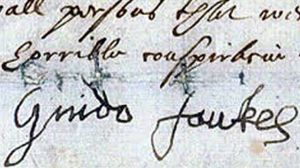 all persons that we
horrible conspiracie
Guido faukes